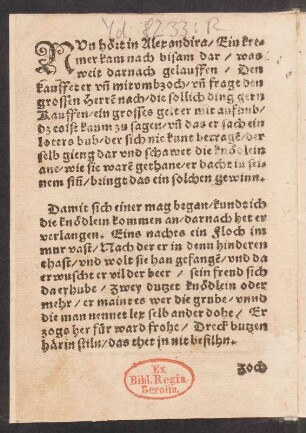 Yd 8233 R
NUn hört in Alexandira/ Ein kre-
mer kam nach bisam dar/ was
weit darnach gelauffen/ Den
kauffet er vñ mit vmbzoch/ vñ fragt den
grossen Herrē nach/ die sollich ding gern
Kauffen/ ein grosses gelt er mit auffhub/
dz ers ist kaum zu sagen/ vñ das er sach ein
loters bub/ der sich nie kunt betragē/ der
selb gieng dar vnd schawet die knödlein
ane/ wie sie warē gethane/ er dacht in sei-
nem siñ/ bringt das ein solchen gewinn.
Damit sich einer mag began/ kund ich
die knödlein kommen an/ darnach het er
verlangen. Eins nachts ein Floch in
mur vast/ Nach der er in denn hinderen
thast/ vnd wolt sie han gefangē/ vnd da
erwuscht er vil der beer/ sein freud sich
da erhube/ zwey dutzet knödlein oder
mehr/ er maint es wer die grube/ vnnd
die man nennet lex selb ander dohe/ Er
zogs her für ward frohe/ Dreck butzen
härin stiln/ das thet jn nit befilhn.
zoch
Ex
Bibl. Regia
Berolin.